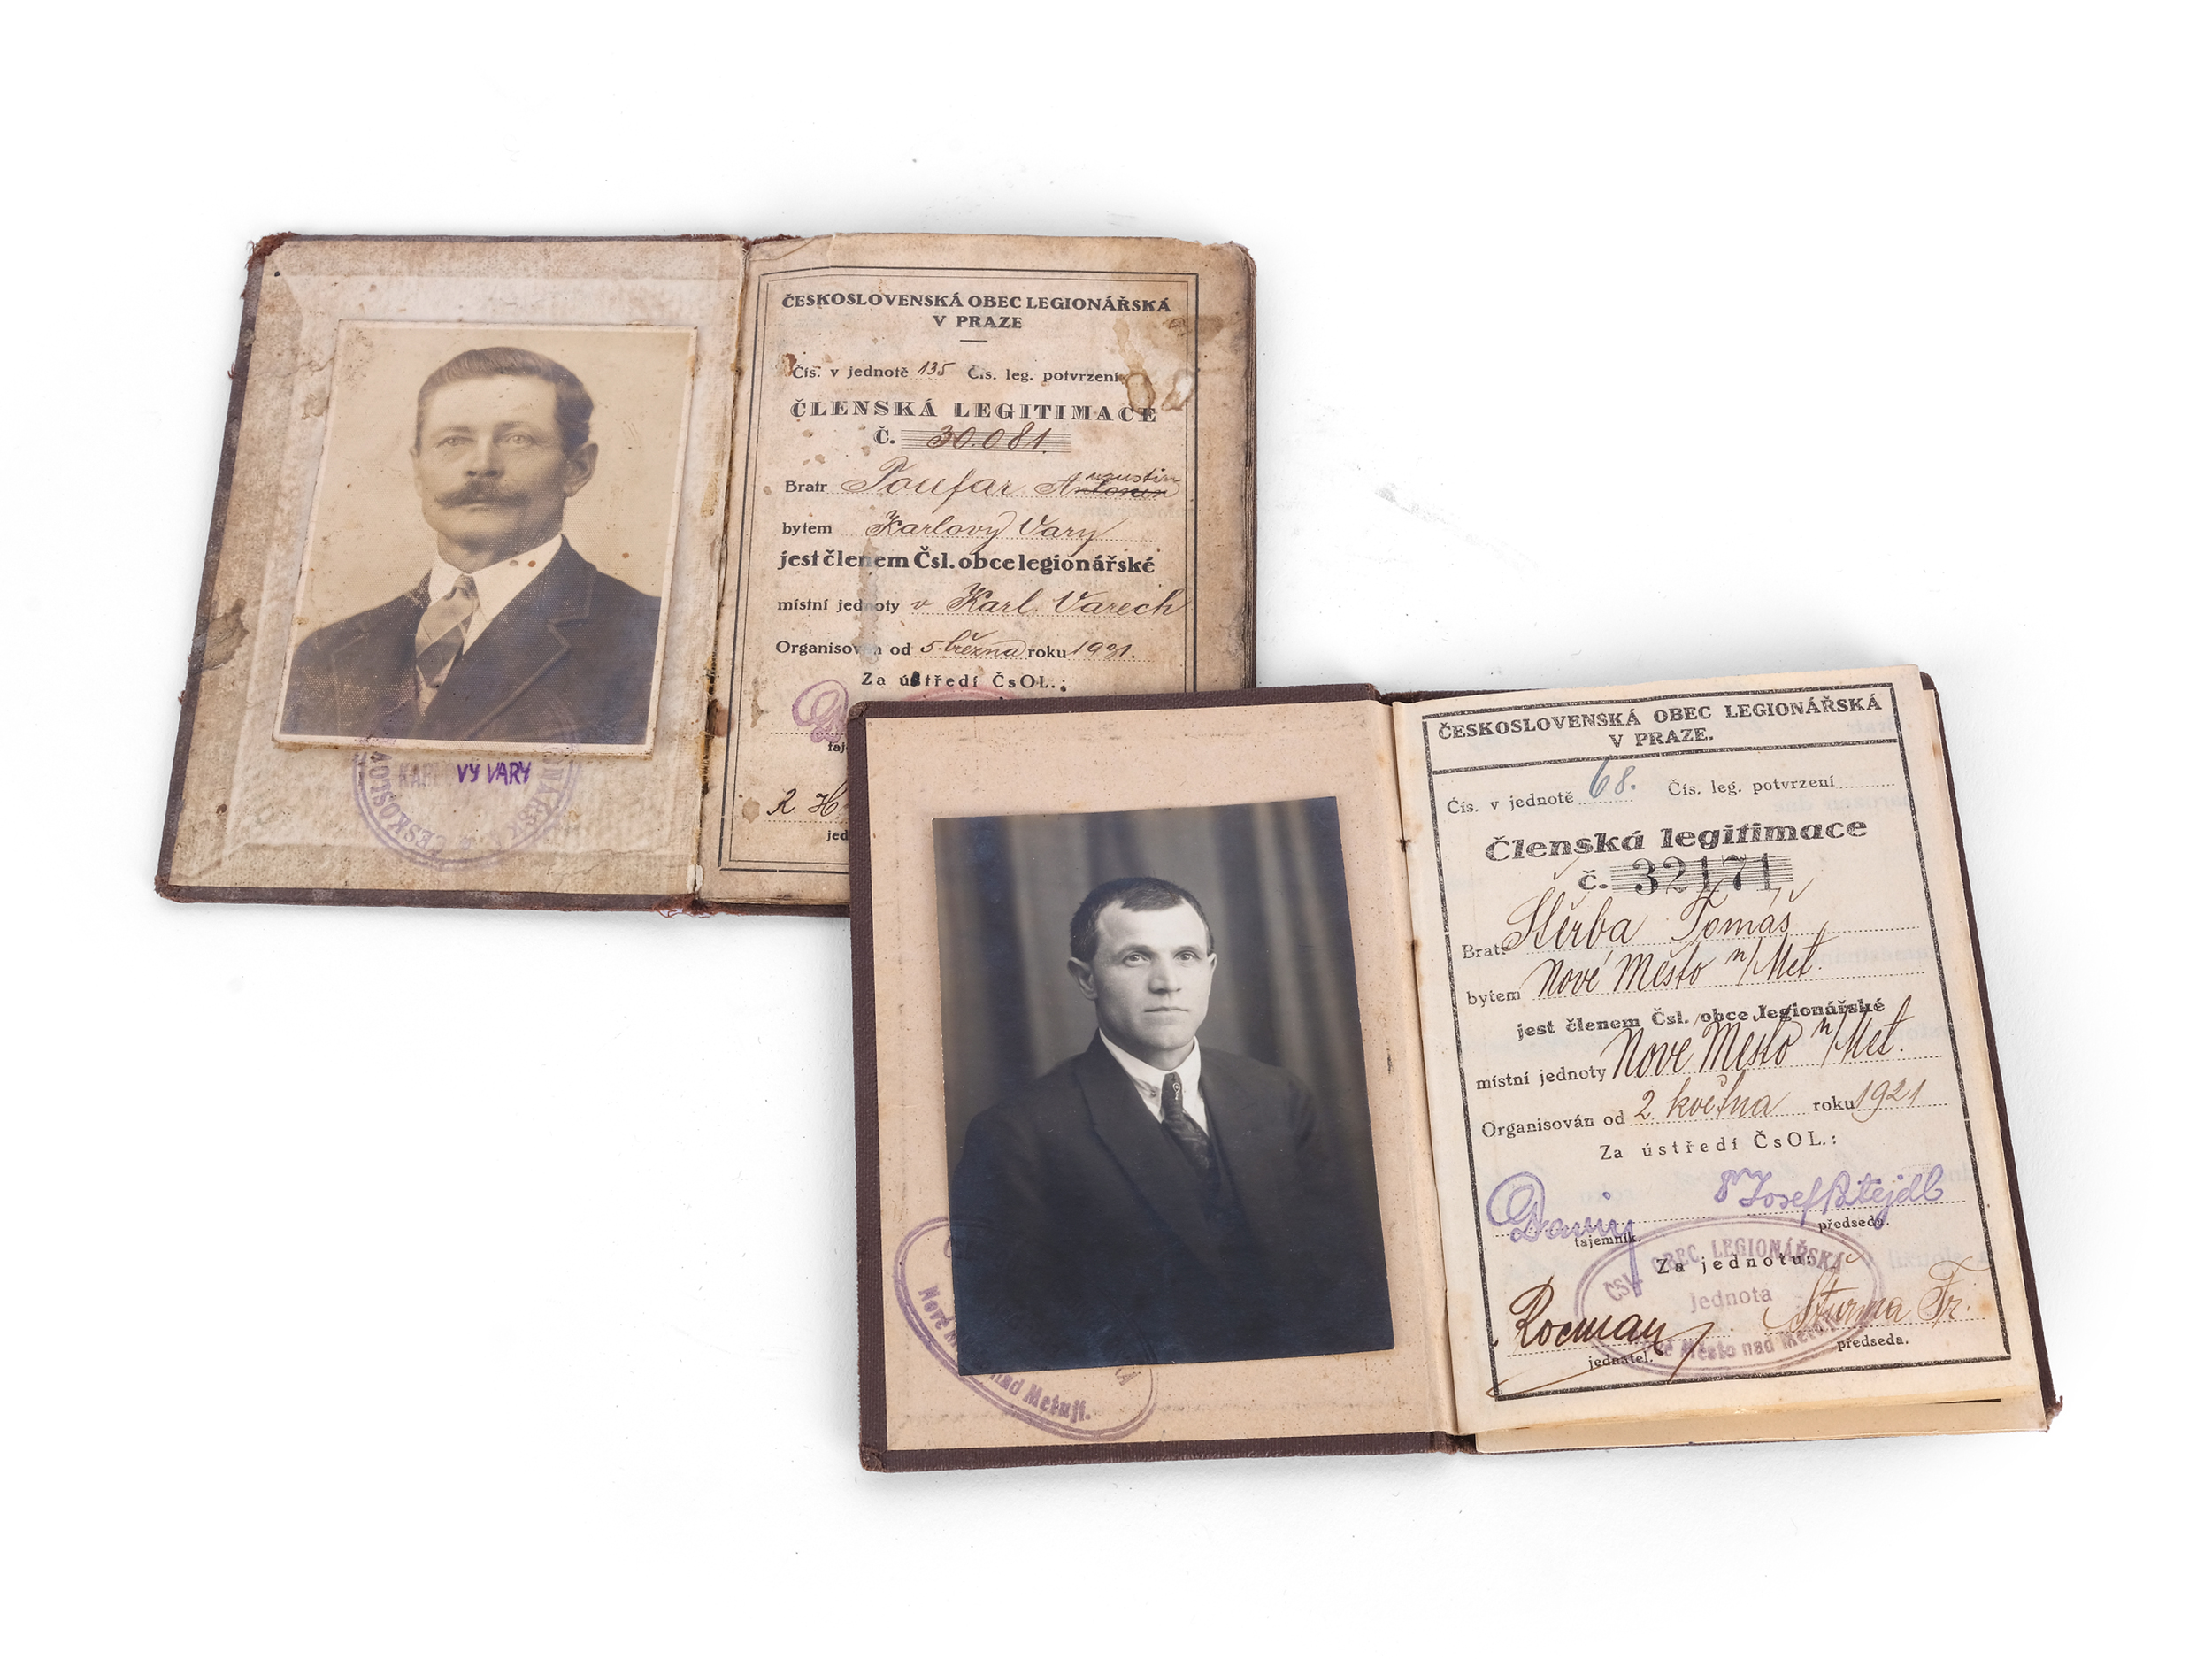 ČESKOSLOVENSKÁ OBEC LEGIONÁŘSKÁ
V PRAZE
Čís. v jednotě 135 Čís. leg. potvrzení
ČLENSKÁ LEGITIMACE
Č. 30.081.
Bratr Poufar Antonin ugustin
bytem Karlovy Vary
jest členem Čsl. obce legionářské
místní jednoty v Karl. Varech
Organisován od 5. března roku 1931.
Za ústředí ČsOL.:
KARLOVY VARY
ČESKOSLO
ČESKOSLOVENSKÁ OBEC LEGIONÁŘSKÁ
V PRAZE.
Čís. v jednotě 68. Čís. leg. potvrzení
Členská legitimace
č. 32171
Bratr Štěrba Tomáš
bytem Nové Město n/Met.
jest členem Čsl. obce legionářské
místní jednoty Nové Město n/Met.
Organisován od 2. května roku 1921
Za ústředí ČsOL.:
tajemník. předseda.
Za jednotu:
ČSL. OBEC LEGIONÁŘSKÁ
jednota
Město nad Metují
Rocman Šturma Fr.
jednatel. předseda.
Nové
nad Metují.